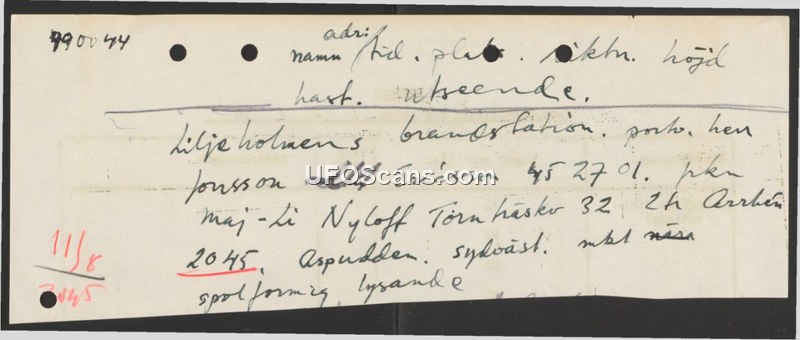 990044
adr:
namn tid. plats. riktn. höjd
hast. utseende.
Liljeholmens brandstation. portv. herr
Jonsson 45 27 01. frkn
Maj-Li Nyloff 32 2tr
2045. Aspudden. sydväst. mkt nära
11/8
2045
spolformig, lysande
UFOScans.com